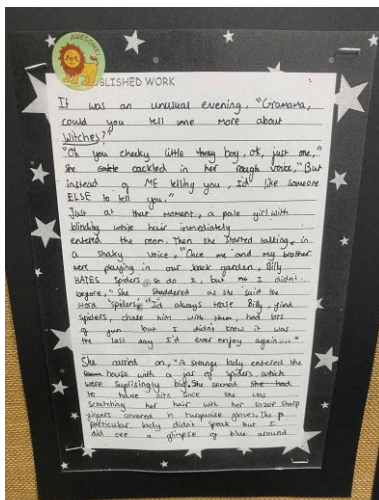 AWESOME!
PUBLISHED WORK
It was an unusual evening, "Gramama,
could you tell me more about
Witches?"
"Oh you cheeky little boy, ok, just one,"
She cackled in her rough voice, "But
instead of ME telling you, I'd like someone
ELSE to tell you,"
Just at that moment, a pale girl with
blinding white hair immediately
entered the room. Then she started talking in
a shaky voice, "Once me and my brother
were playing in our back garden, Billy
HATES spiders so do I, but I didn't
before," She shuddered as she said the
word spiders "I'd always tease Billy, find
spiders, chase him with them, had lots
of fun but I didn't know it was
the last day I'd ever enjoy again...."
She carried on, "A strange lady entered the
house with a jar of spiders which
were suprisingly big. She seemed she had
to have nits since she was
scratching her hair with her razor sharp
fingers covered in turquoise gloves. The
particular lady didn't speak but I
did see a glimpse of blue around